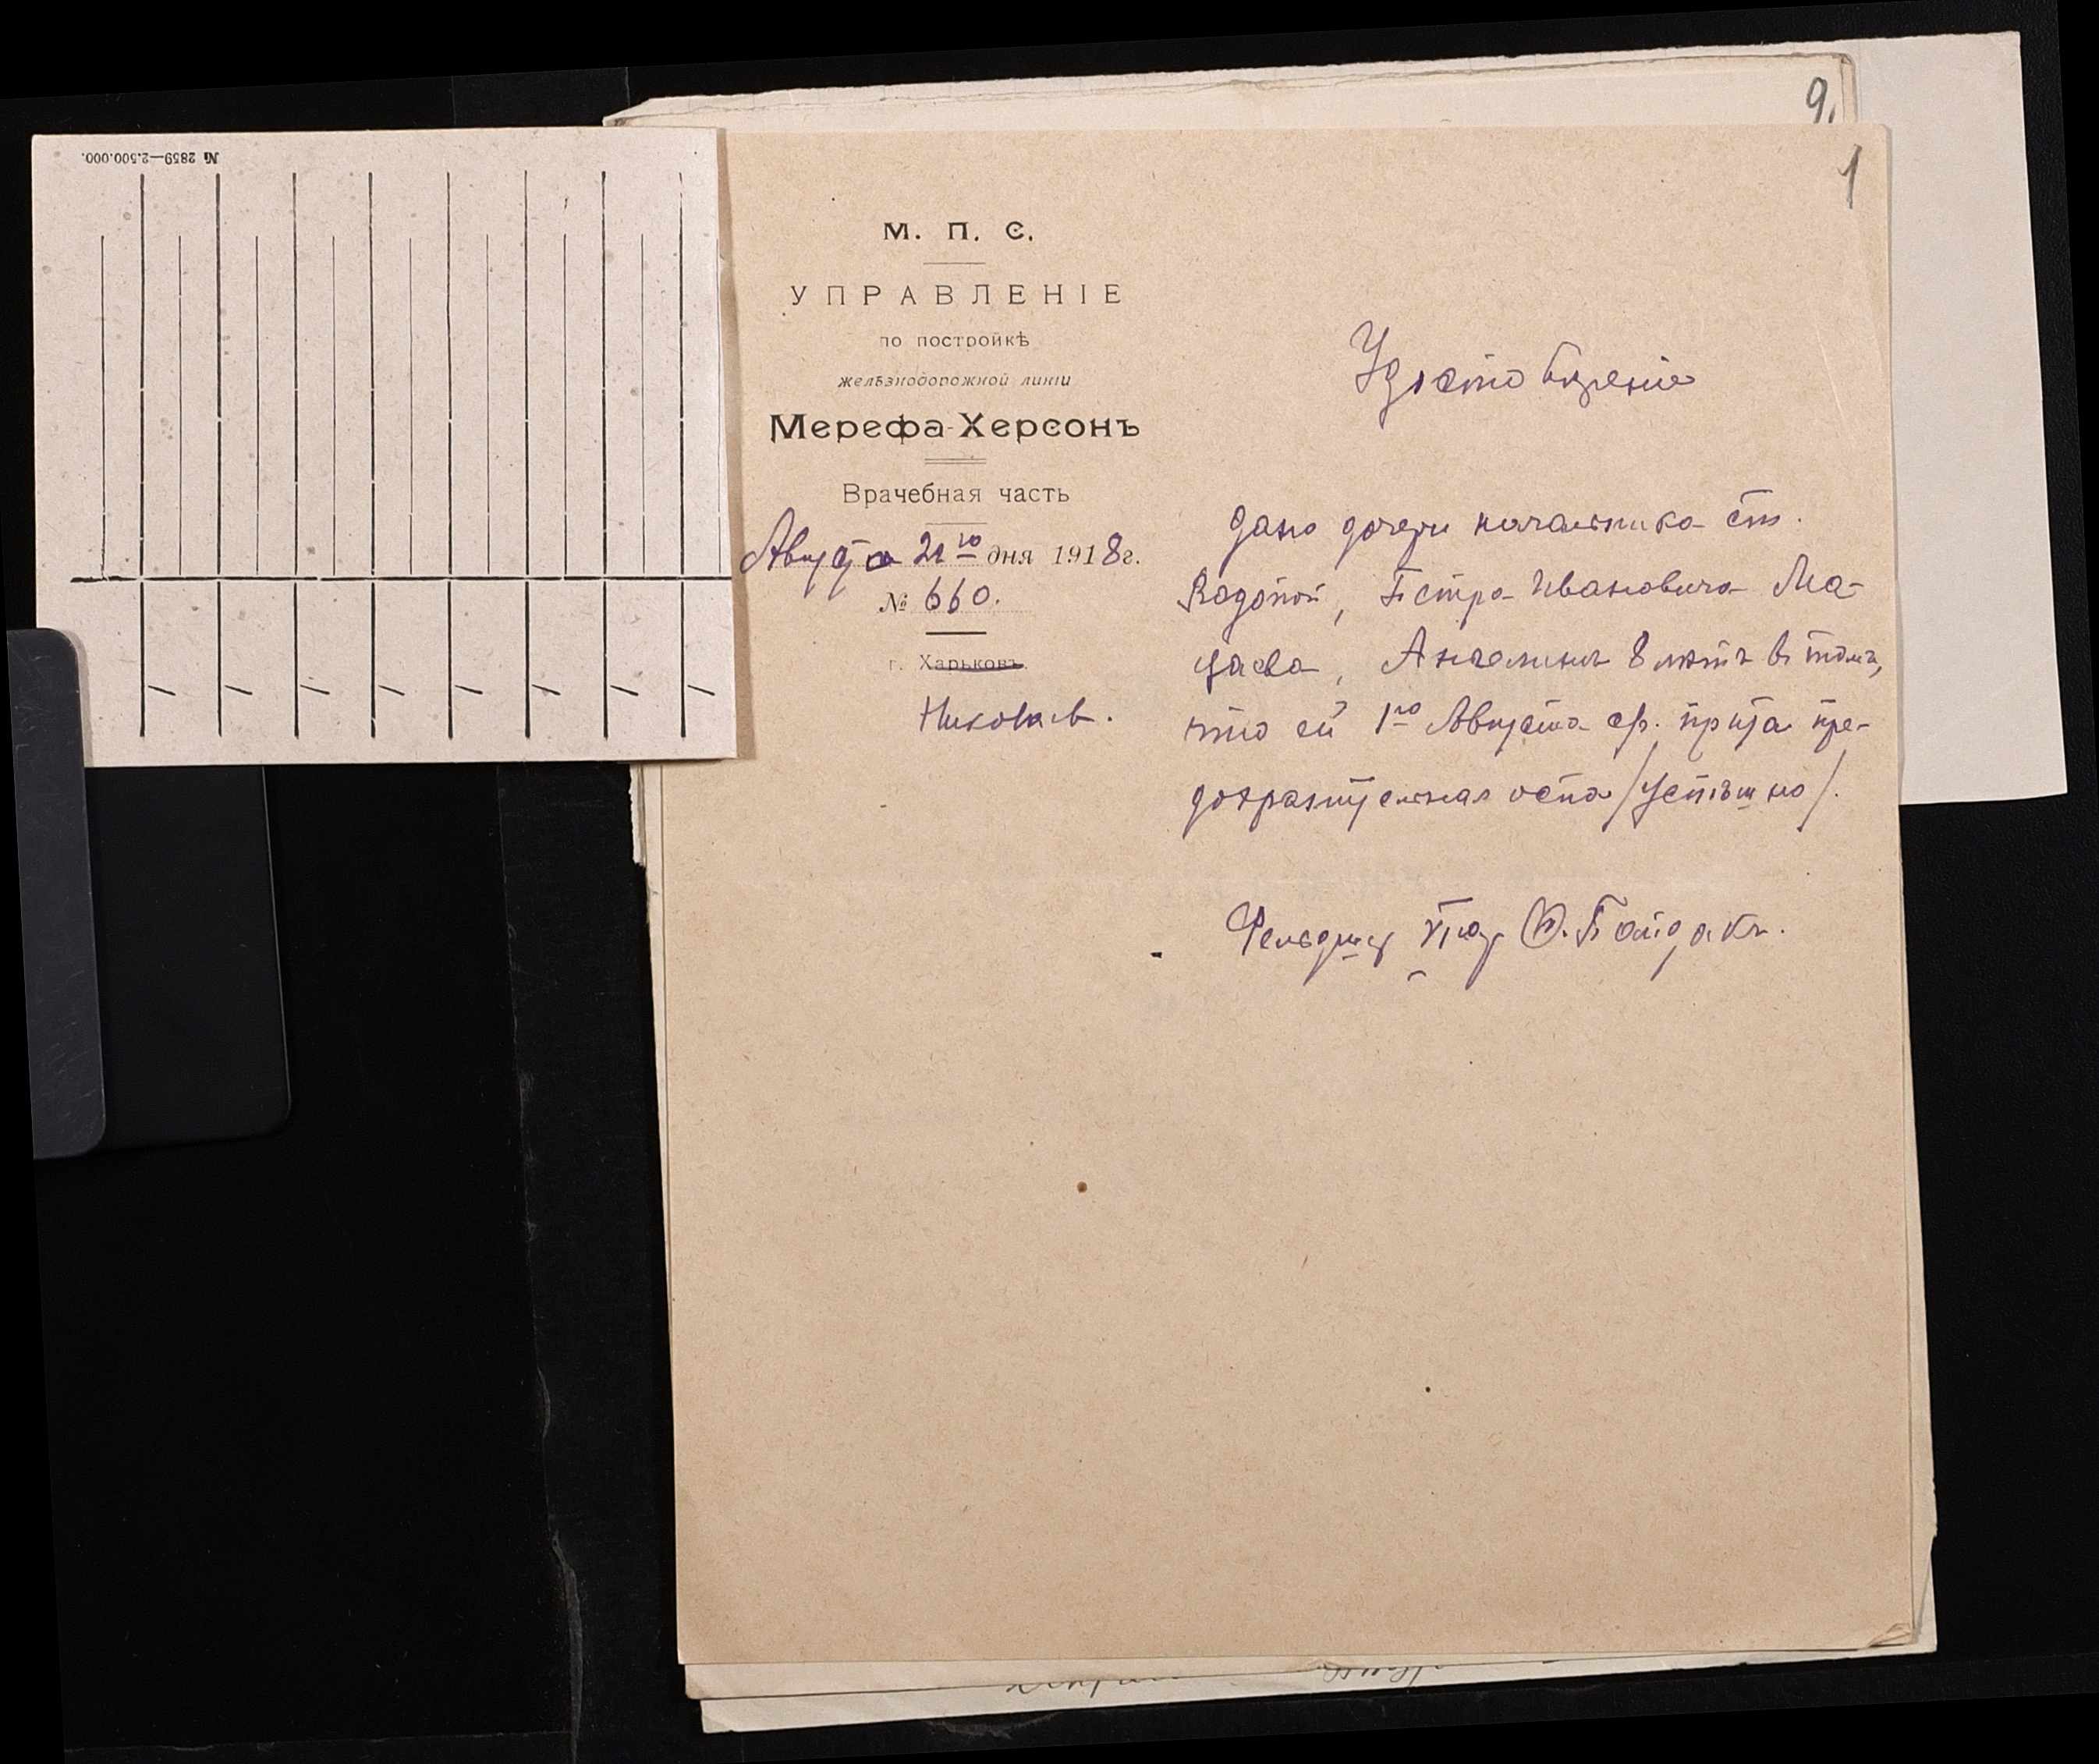 № 2859—2.500.000.
9.
1
М. П. С.
УПРАВЛЕНІЕ
по постройкѣ
желѣзнодорожной линіи
Мерефа-Херсонъ
Врачебная часть
Августа 21го дня 1918г.
№ 660.
г. Харьковъ.
Николаев.
Удостовѣреніе
Дано дочери начальника ст.
Водопой, Петра Ивановича Ма-
цаева, Ангелинѣ 8 лѣтъ въ томъ,
что ей 1го Августа с/г. привита пре-
дохранительная оспа /успѣшно/.
Фельдшер Байдакъ.